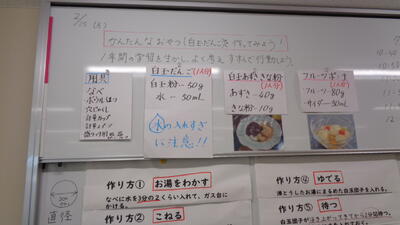 2/15 (木)
かんたんなおやつ(白玉だんご)を作ってみよう!
1年間の学習を生かし、よく考え、すすんで行動しよう。
用具
なべ
ボウル
穴じゃくし
計量カップ
計量スプーン
白玉だんご(1人分)
白玉粉…50g
水…50mL
水の入れすぎに注意!!
白玉あずききな粉(1人分)
あずき…40g
きな粉…10g
フルーツポンチ(1人分)
フルーツ…80g
サイダー…50mL
作り方① お湯をわかす
なべに水を3分の2くらい入れて、ガス台にかける。
作り方② こねる
直径
作り方④ ゆでる
沸とうしたお湯にまるめた白玉団子を入れる。
作り方⑤ 待つ